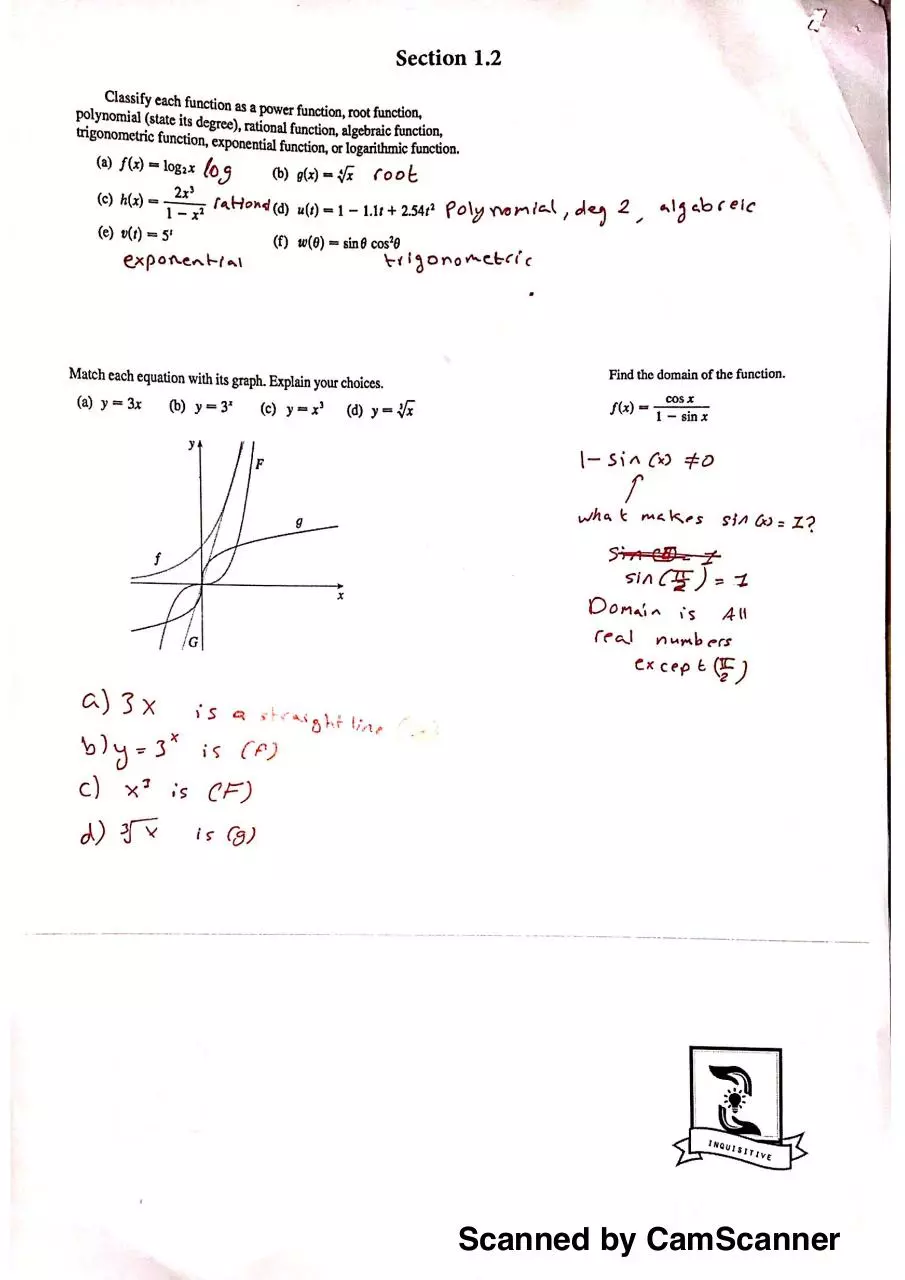 Section 1.2
Classify each function as a power function, root function,
polynomial (state its degree), rational function, algebraic function,
trigonometric function, exponential function, or logarithmic function.
(a) f(x) = log₂x log (b) g(x) = ∜x root
(c) h(x) = 2x³ / 1 − x² rational (d) u(t) = 1 − 1.1t + 2.54t² Polynomial, deg 2, algabreic
(e) v(t) = 5ᵗ (f) w(θ) = sin θ cos²θ
exponential trigonometric
Match each equation with its graph. Explain your choices.
(a) y = 3x (b) y = 3ˣ (c) y = x³ (d) y = ∛x
y
F
g
f
x
G
a) 3x is a straight line
b) y = 3ˣ is (f)
c) x³ is (F)
d) ∛x is (g)
Find the domain of the function.
f(x) = cos x / 1 − sin x
1 − sin (x) ≠ 0
what makes sin (x) = 1?
sin (π/2) = 1
Domain is All
real numbers
except (π/2)
INQUISITIVE
Scanned by CamScanner